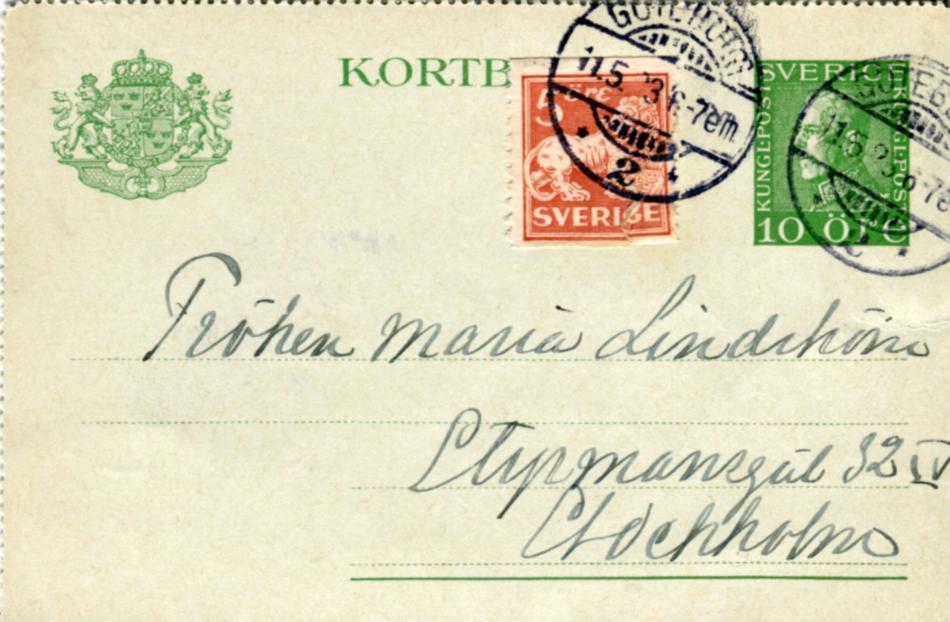 KORTB
5 öre
SVERIGE
GÖTEBORG
11.5.23 6-7em
2
SVERIGE
KUNGL·POST
KUNGL·POST
10 ÖRE
GÖTEB
11.5.23 6-7e
2
Fröken Maria Lindström
Styrmansgat 32 IV
Stockholm